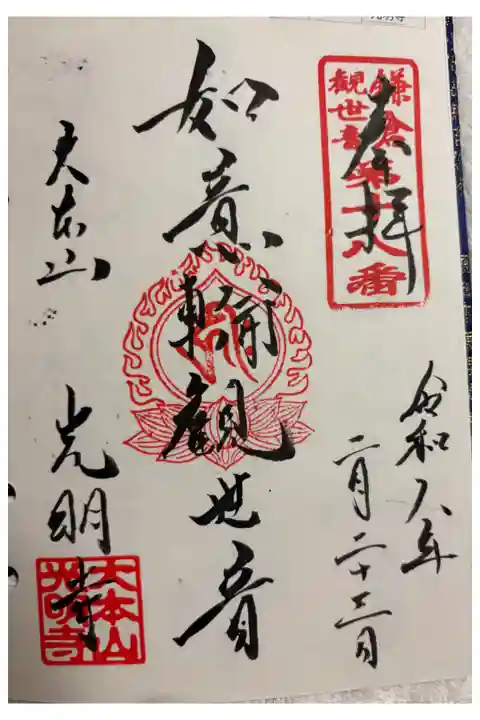 奉拝
鎌倉
観世音
第十八番
令和八年
二月二十三日
如意輪観世音
大本山 光明寺
大本山
光明寺